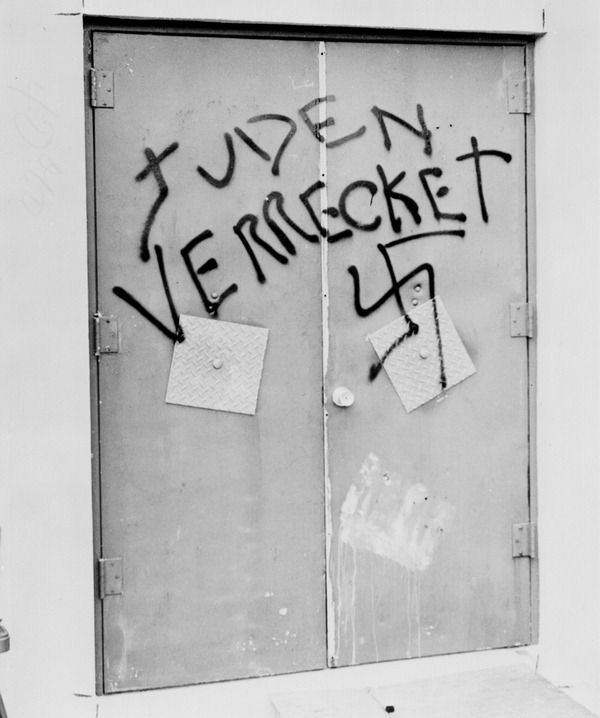 JUDEN
VERRECKET